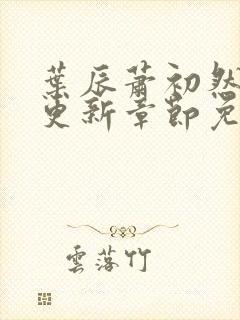 葉辰蕭初然
更新章節免
雲落竹